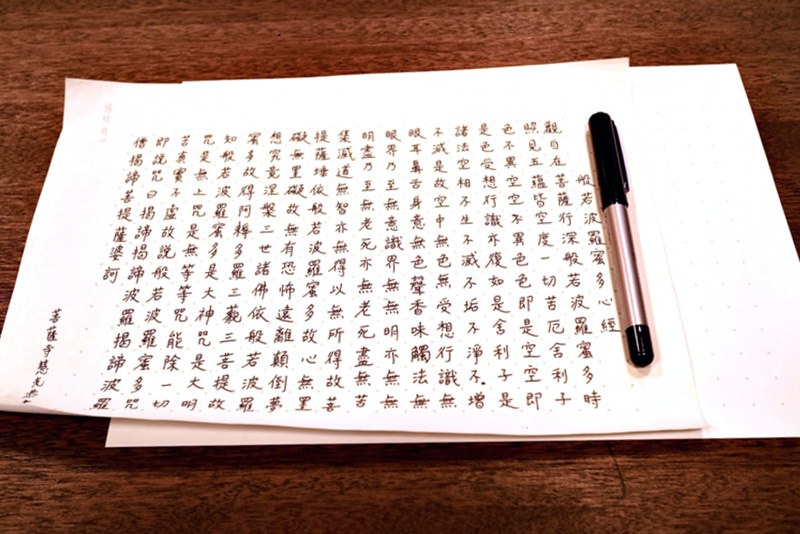 般若波羅蜜多心經
觀自在菩薩行深般若波羅蜜多時
照見五蘊皆空度一切苦厄舍利子
色不異空空不異色色即是空空即
是色受想行識亦復如是舍利子是
諸法空相不生不滅不垢不淨不增
不減是故空中無色無受想行識無
眼耳鼻舌身意無色聲香味觸法無
眼界乃至無意識界無無明亦無無
明盡乃至無老死亦無老死盡無苦
集滅道無智亦無得以無所得故菩
提薩埵依般若波羅蜜多故心無罣
礙無罣礙故無有恐怖遠離顛倒夢
想究竟涅槃三世諸佛依般若波羅
蜜多故得阿耨多羅三藐三菩提故
知般若波羅蜜多是大神咒是大明
咒是無上咒是無等等咒能除一切
苦真實不虛故說般若波羅蜜多咒
即說咒曰揭諦揭諦波羅揭諦波羅
僧揭諦菩提薩婆訶
菩薩寺慧光